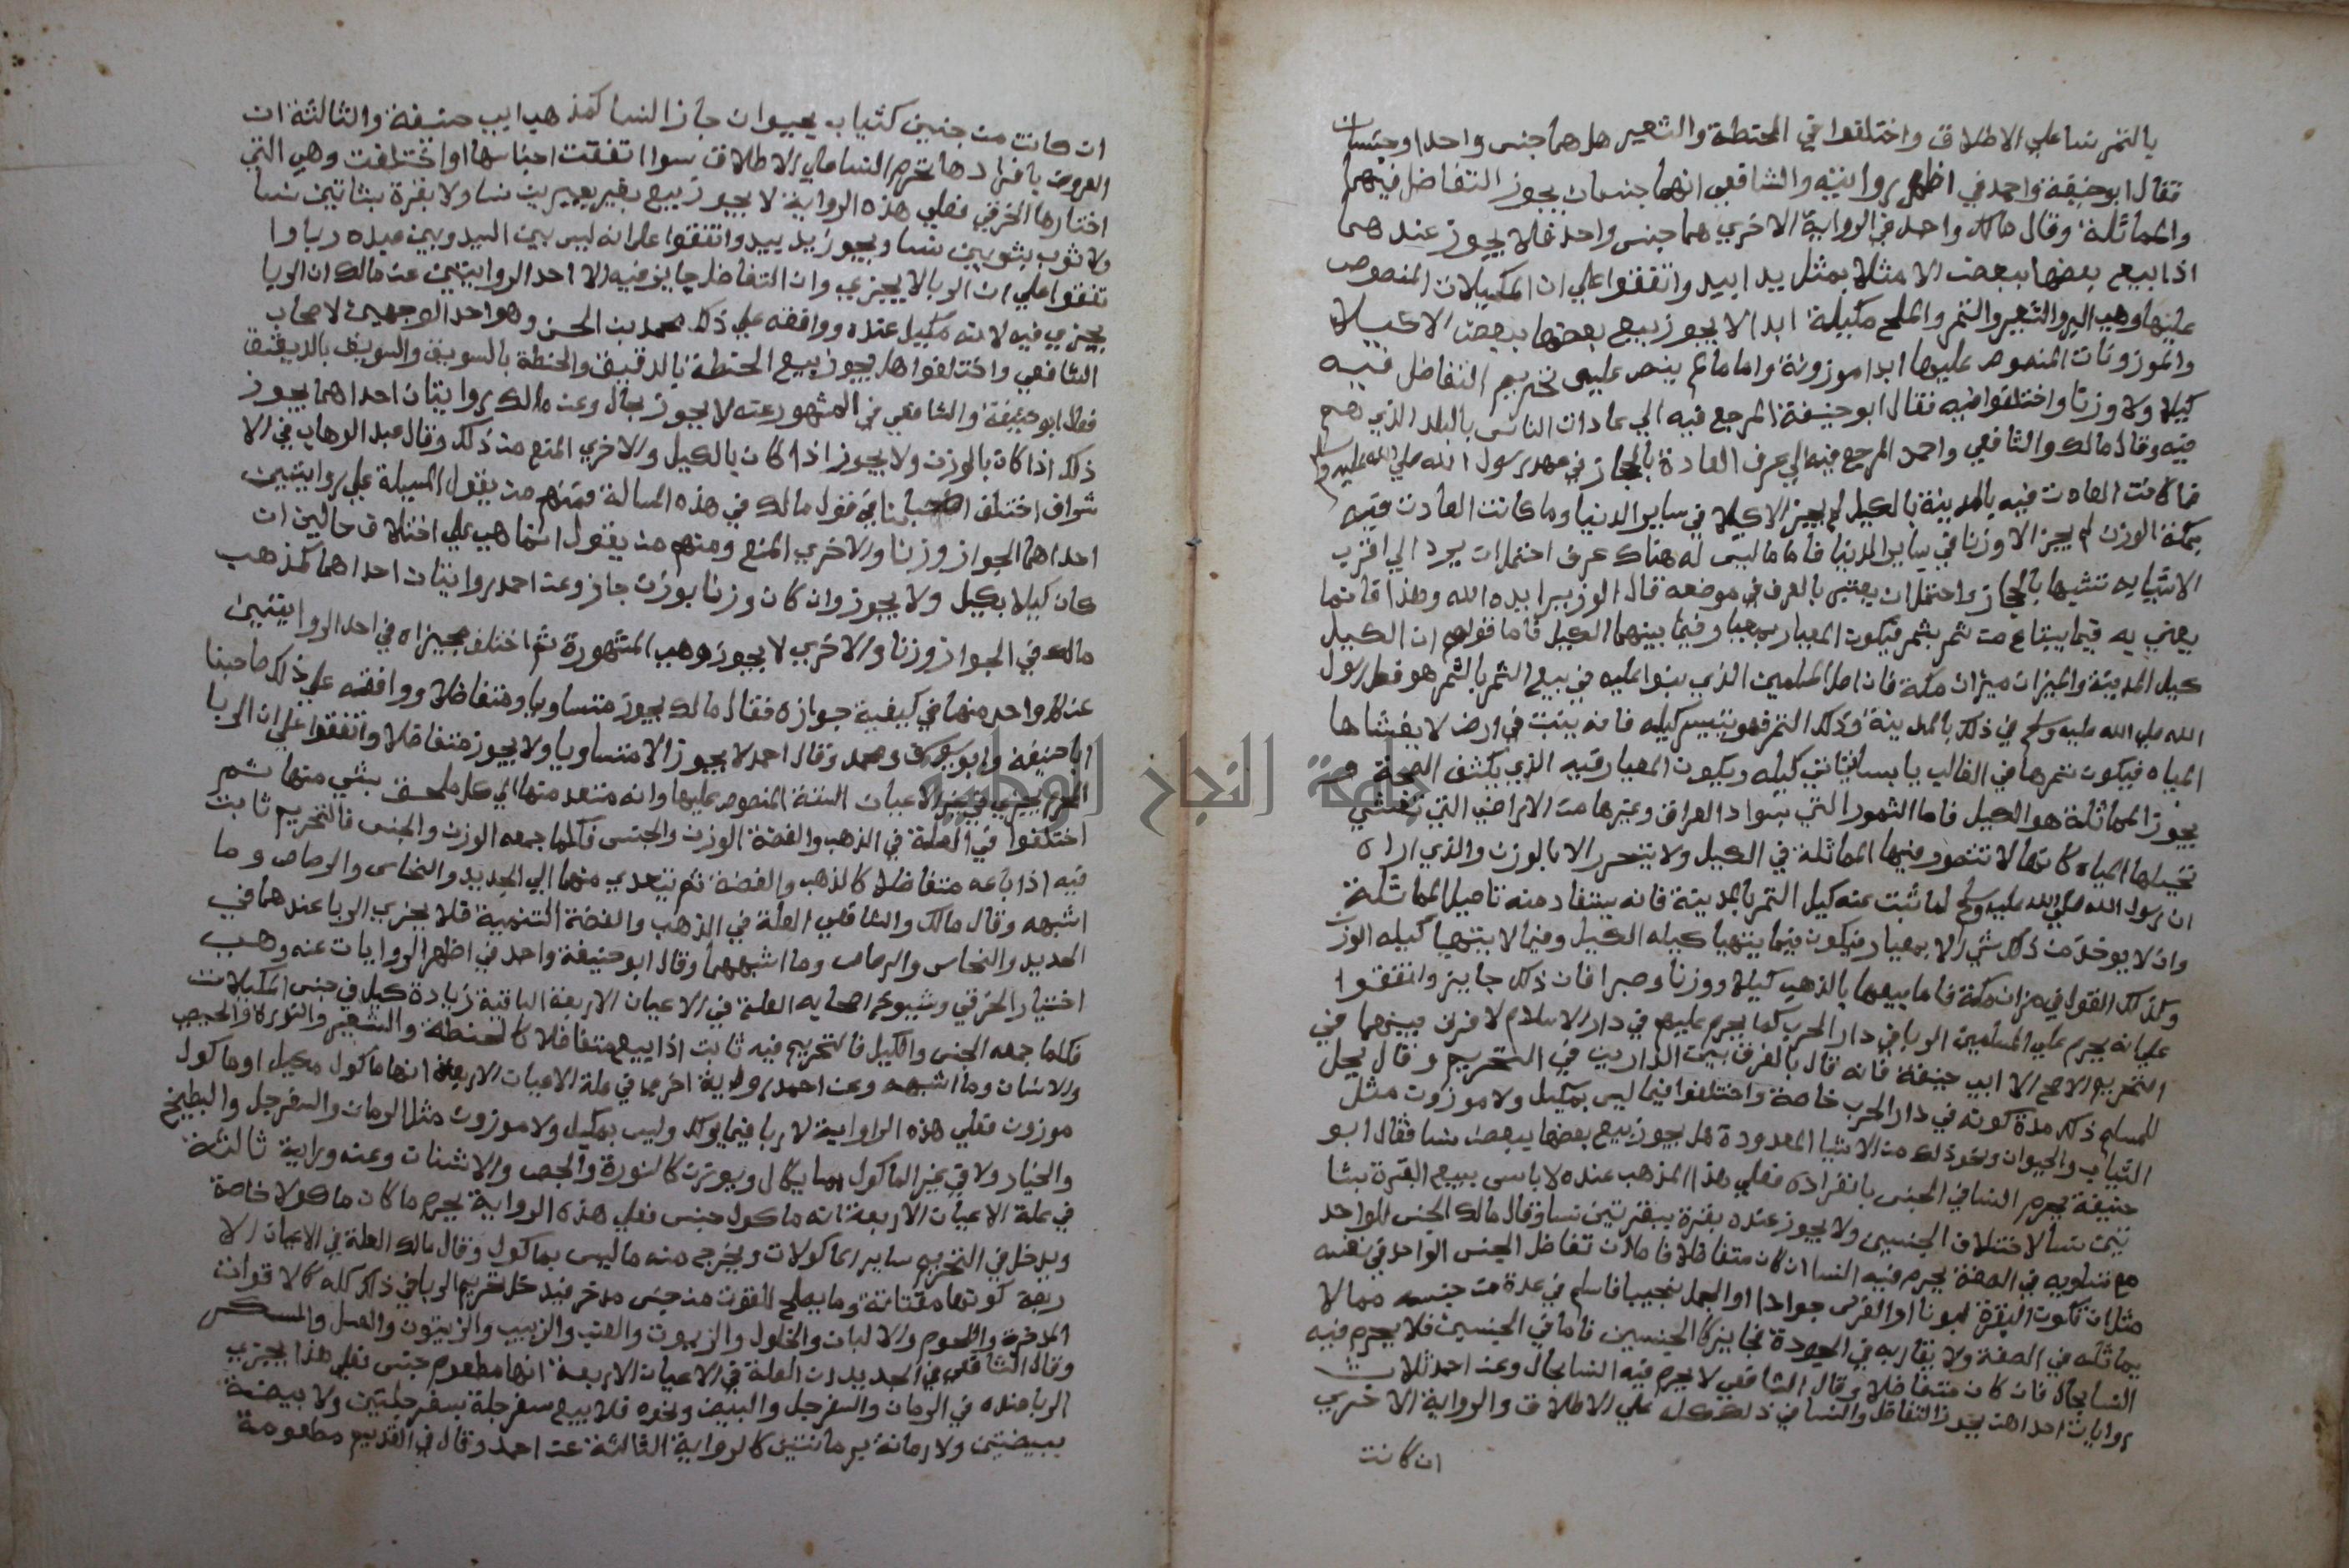 بالتمر نسا علي الاطلاق واختلفوا في الحنطة والشعير هل هما جنس واحد او جنسان
فقال ابو حنيفة واحمد في اظهر روايتيه والشافعي انهما جنسان يجوز التفاضل فيهما
والمماثلة وقال مالك واحمد في الرواية الاخري هما جنس واحد فلا يجوز عندهما
اذا بيع بعضها ببعض الا مثلا بمثل يدا بيد واتفقوا علي ان المكيلات المنصوص
عليها وهي البر والشعير والتمر والملح مكيلة ابدا لا يجوز بيع بعضها ببعض الا كيلا
والموزونات المنصوص عليها ابدا موزونة واما مالم ينص عليى تحريم التفاضل فيه
كيلا ولا وزنا واختلفوا فيه فقال ابو حنيفة المرجع فيه الي عادات الناس بالبلد الذي هم
فيه وقال مالك والشافعي واحمد المرجع فيه الي عرف العادة بالحجاز في عهد رسول الله صلي الله عليه وسلم
فما كانت العادت فيه بالمدينة بالكيل لم يجز الا كيلا في ساير الدنيا وما كانت العادت فيه
بمكة الوزن لم يجز الا وزنا في ساير الدنيا فاما ما ليس له هناك عرف احتملات يرد الي اقرب
الاشيا به تشبيها بالحجاز واحتمل ان يعتبر بالعرف في موضعه قال الوزير ايده الله وهذا فانما
يعني به فيما يبتاع من ثمر بثمر فيكون المعيار بمعيار وفيما بينهما الكيل فاما قولهم ان الكيل
كيل المدينة والميزان ميزان مكة فان اصل المسلمين الذي بنوا عليه في بيع الثمر بالثمر هو فعل رسول
الله صلي الله عليه وسلم في ذلك بالمدينة وذلك التمر فهو يتيسر كيله فانه ينبت في ارض لا يغشاها
المياه فيكون تمرها في الغالب يابسا فيتاتي كيله ويكون المعيار فيه الذي يكشف الصحة
يجوز المماثلة هو الكيل فاما الثمور التي بسواد العراق وغيرها من الاراضي التي تغشي
نخيلها المياه فانها لا تتصور فيها المماثلة في الكيل ولا يتحرر الا بالوزن والذي اراه
ان رسول الله صلي الله عليه وسلم لما ثبت عنه كيل التمر بالمدينة فانه يستفاد منه تاصيل المماثلة
وان لا يوخذ من ذلك شي الا بمعيار فيكون فيما يتهيا كيله الكيل وفيما لا يتهيا كيله الوزن
وكذلك القول في ميزان مكة فاما بيعها بالذهب كيلا ووزنا وصبرا فان ذلك جايز واتفقوا
علي انه يحرم علي المسلمين الربا في دار الحرب كما يحرم عليهم في دار الاسلام لا فرق بينهما في
التحريم الا ابي حنيفة فانه قال بالفرق بين الدارين في التحريم وقال يحل
للمسلم ذلك مدة كونه في دار الحرب خاصة واختلفوا فيما ليس بمكيل ولا موزون مثل
الثياب والحيوان ونحو ذلك من الاشيا المعدودة هل يجوز بيع بعضها ببعض نسا فقال ابو
حنيفة يحرم النسا في الجنس بانفراده فعلي هذا المذهب عنده لا باس ببيع البقرة بشا
تين نسا لاختلاف الجنسين ولا يجوز عنده بقرة ببقرتين نسا وقال مالك الجنس الواحد
مع تساويه في الصفة يحرم فيه النسا ان كان متفاضلا فاما ان تفاضل الجنس الواحد في نفسه
مثل ان تكون البقرة لبونا او الفرس جوادا او الجمل نجيبا فاسلم في عدة من جنسه مما لا
يماثله في الصفة ولا يقاربه في الجودة فجايز كالجنسين فاما في الجنسين فلا يحرم فيه
النسا بحال فان كان متفاضلا وقال الشافعي لا يحرم فيه النسا بحال وعن احمد ثلاث
روايات احداهن يجوز التفاضل والنسا في ذلك كله علي الاطلاق والرواية الاخري
ان كانت
ان كانت من جنسين كثياب بحيوان جاز النسا كمذهب ابي حنيفة والثالثة ان
العروض بافرادها تحرم النسا علي الاطلاق سوا اتفقت اجناسها او اختلفت وهي التي
اختارها الخرقي فعلي هذه الرواية لا يجوز بيع بعير ببعيرين نسا ولا بقرة بشاتين نسا
ولا ثوب بثوبين نسا ويجوز يد بيد واتفقوا علي انه ليس بين السيد وبين عبده ربا وا
تفقوا علي ان الربا لا يجزي وان التفاضل جايز فيه الا احد الروايتين عن مالك ان الربا
يجري فيه لانه مكيل عنده ووافقه علي ذلك محمد بن الحسن وهو احد الوجهين لاصحاب
الشافعي واختلفوا هل يجوز بيع الحنطة بالدقيق والحنطة بالسويق والسويق بالدقيق
فقال ابو حنيفة والشافعي في المشهور عنه لا يجوز بحال وعن مالك روايتان احداهما يجوز
ذلك اذا كان بالوزن ولا يجوز اذا كان بالكيل والاخري المنع من ذلك وقال عبد الوهاب في الا
شراف اختلف اصحابنا في قول مالك في هذه المسالة فمنهم من يقول المسيلة علي روايتين
احداهما الجواز وزنا والاخري المنع ومنهم من يقول انما هي علي اختلاف حالين ان
كان كيلا بكيل ولا يجوز وان كان وزنا بوزن جاز وعن احمد روايتان احداهما كمذهب
مالك في الجواز وزنا والاخري لا يجوز وهي المشهورة ثم اختلف مجيزاه في احد الروايتين
عن كل واحد منهما في كيفية جوازه فقال مالك يجوز متساويا ومتفاضلا ووافقه علي ذلك صاحبنا
ابا حنيفة وابو يوسف ومحمد وقال احمد لا يجوز الا متساويا ولا يجوز متفاضلا واتفقوا علي ان الربا
المحرم يجري في غير الاعيان الستة المنصوص عليها وانه متعد منها الي كل ملحق بشي منها ثم
اختلفوا في العلة في الذهب والفضة الوزن والجنس فكلما جمعه الوزن والجنس فالتحريم ثابت
فيه اذا باعه متفاضلا كالذهب والفضة ثم يتعدي منهما الي الحديد والنحاس والرصاص وما
اشبهه وقال مالك والشافعي العلة في الذهب والفضة الثنمية فلا يجزي الربا عندهما في
الحديد والنحاس والرصاص وما اشبههما وقال ابو حنيفة واحمد في اظهر الروايات عنه وهي
اختيار الخرقي وشيوخ اصحابه العلة في الاعيان الاربعة الباقية زيادة كيل في جنس المكيلات
فكلما جمعه الجنس والكيل فالتحريم فيه ثابت اذا بيع متفاضلا كالحنطة والشعير والنورة والجص
والاشنان وما اشبهه وعن احمد رواية اخري في علة الاعيان الاربعة انها ماكول مكيل او ماكول
موزون فعلي هذه الرواية لا ربا فيما يوكل وليس بمكيل ولا موزون مثل الرمان والسفرجل والبطيخ
والخيار ولا في غير الماكول مما يكال ويوزن كالنورة والجص والاشنان وعنه ورواية ثالثة
في علة الاعيان الاربعة انه ماكول جنس فعلي هذه الرواية يحرم ما كان ماكولا خاصة
ويدخل في التحريم ساير الماكولات ويخرج منه ما ليس بماكول وقال مالك العلة في الاعيان الا
ربعة كونها مقتاتة وما يصلح للقوت من جنس مدخر فيدخل تحريم الربا في ذلك كله كالاقوات
المدخرة واللحوم والالبان والخلول والزيوت والعنب والزبيب والزيتون والعسل والسكر
وقال الشافعي في الجديد ان العلة في الاعيان الاربعة انها مطعوم جنس فعلي هذا يجري
الربا عنده في الرمان والسفرجل والبيض ونحوه فلا يبيع سفرجلة بسفرجلتين ولا بيضة
ببيضتين ولا رمانة برمانتين كالرواية الثالثة عن احمد وقال في القديم مطعومة
جامعة النجاح الوطنية